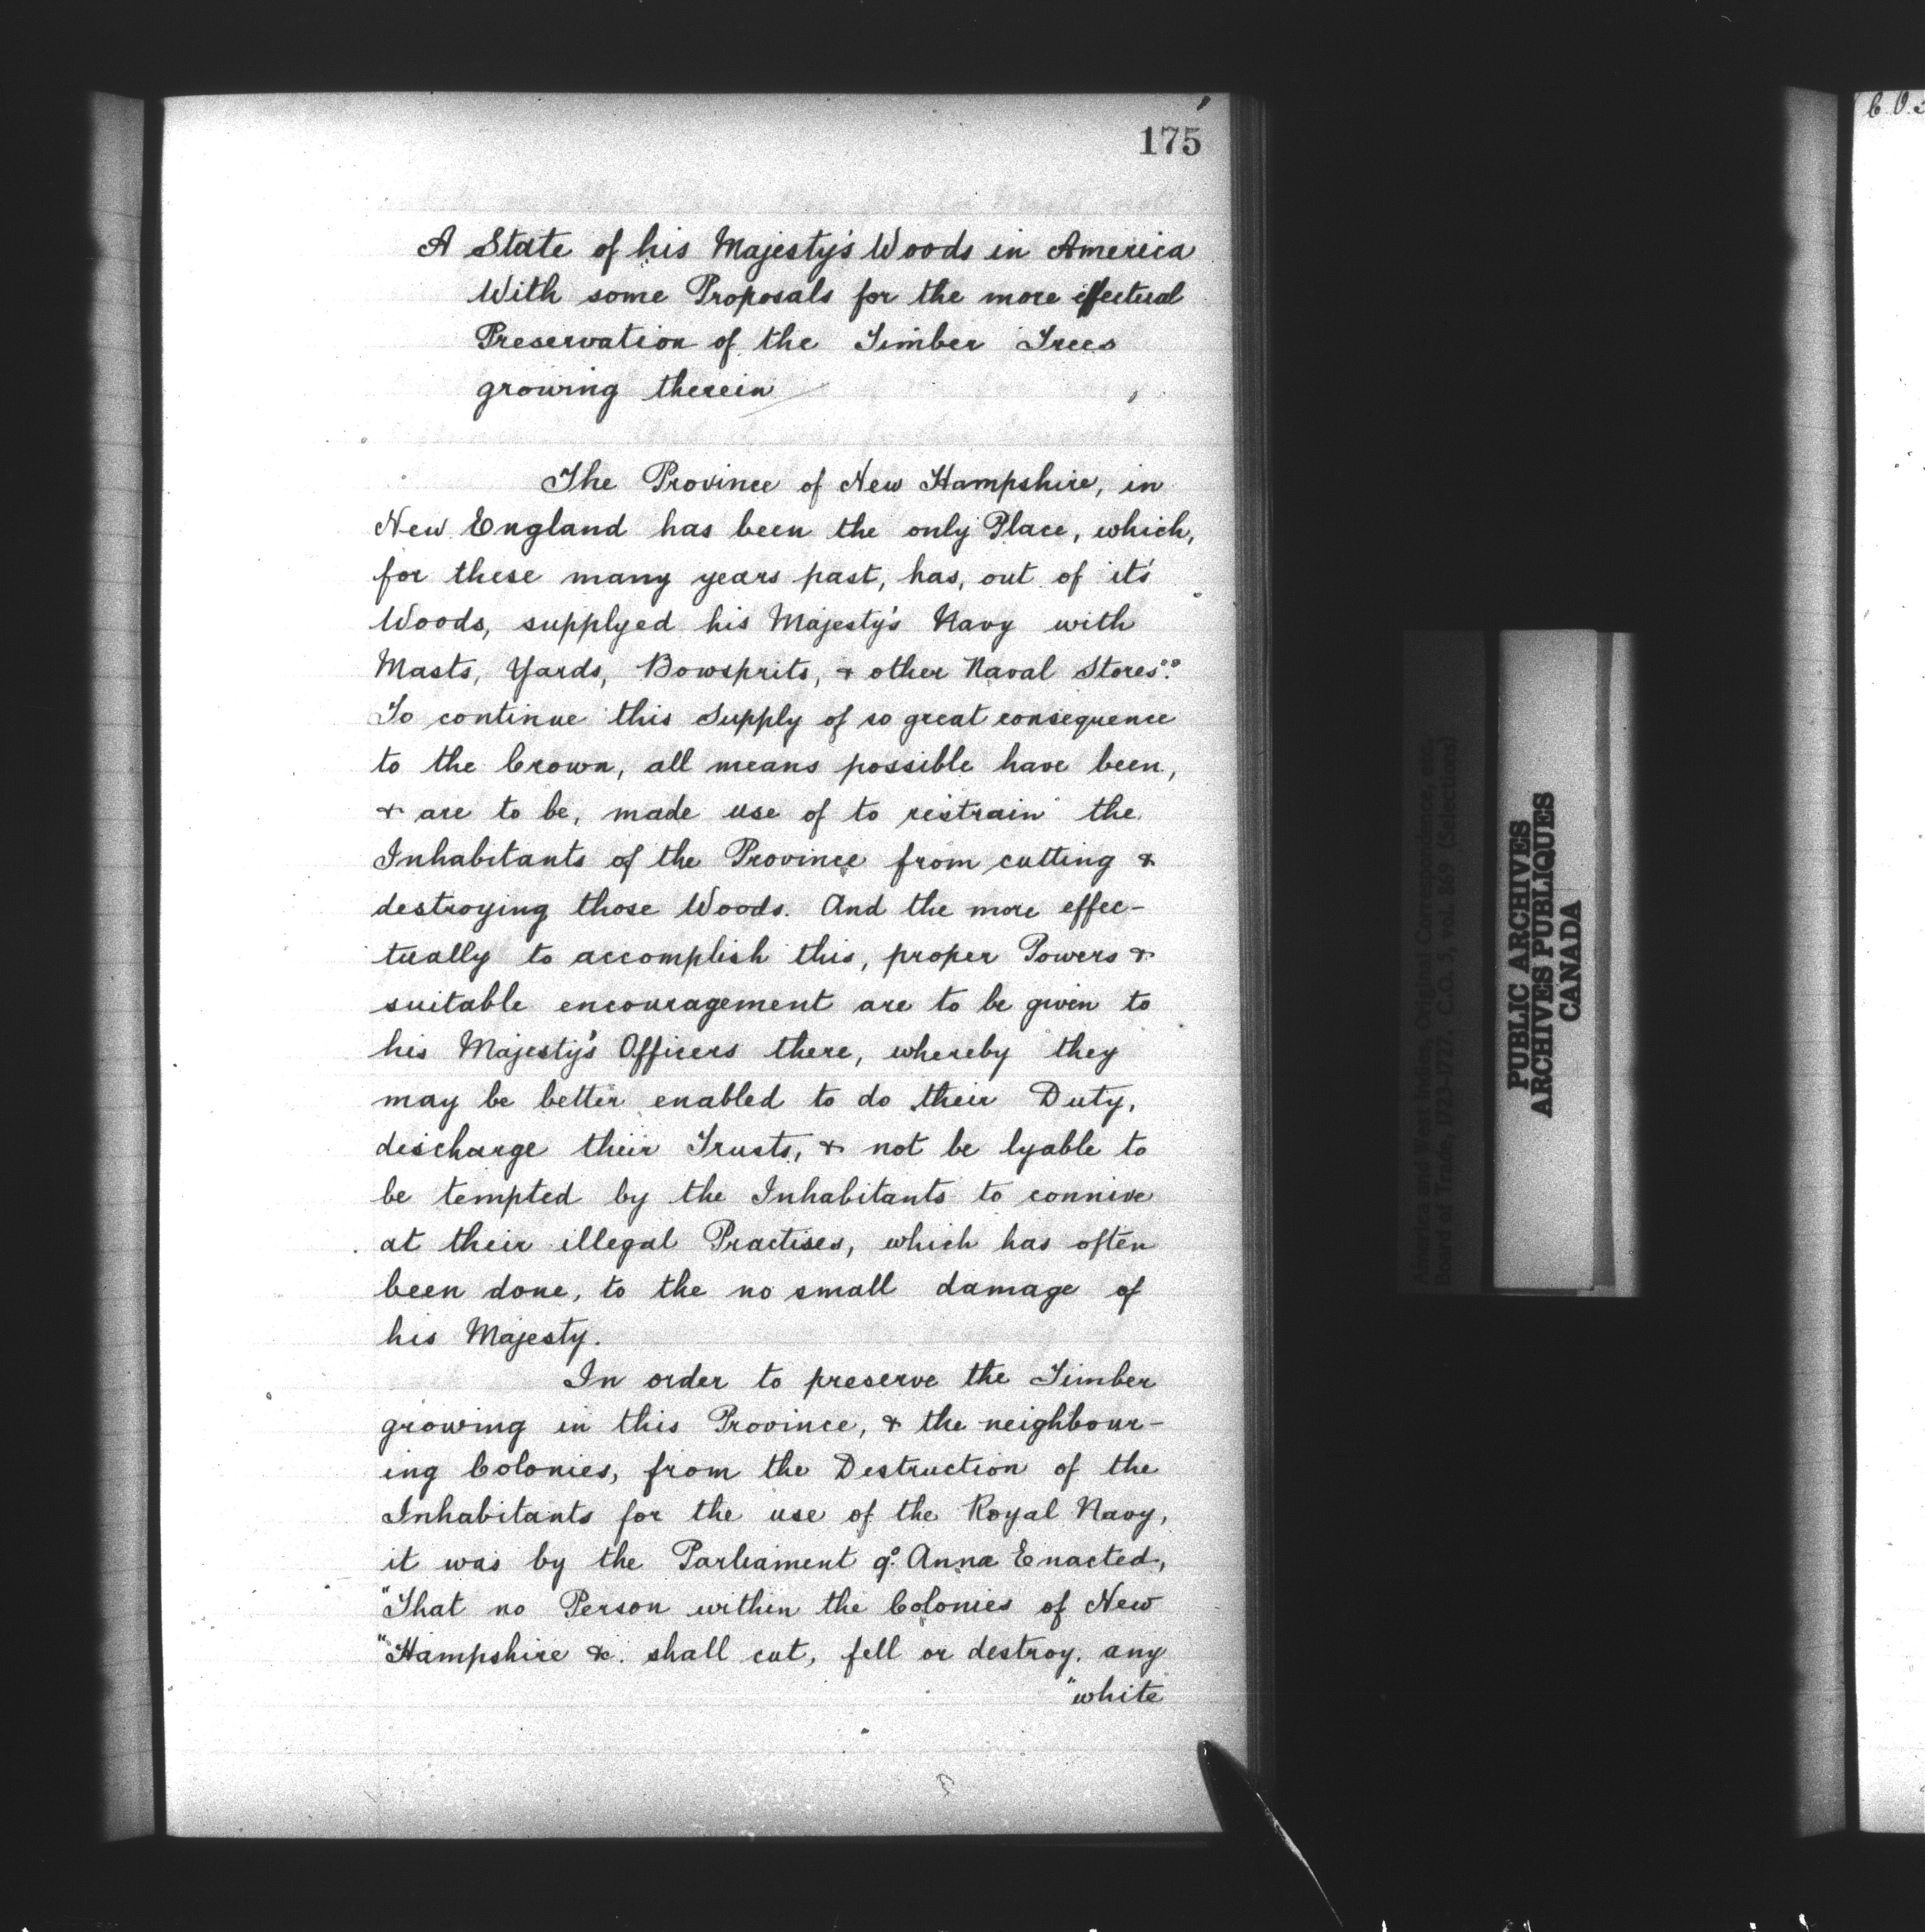 175
A State of his Majesty's Woods in America
With some Proposals for the more effectual
Preservation of the Timber Trees
growing therein
The Province of New Hampshire, in
New England has been the only Place, which,
for these many years past, has, out of it's
Woods, supplyed his Majesty's Navy with
Masts, Yards, Bowsprits, & other Naval Stores:
To continue this Supply of so great consequence
to the Crown, all means possible have been,
& are to be, made use of to restrain the
Inhabitants of the Province from cutting &
destroying those Woods. And the more effec-
tually to accomplish this, proper Powers &
suitable encouragement are to be given to
his Majesty's Officers there, whereby they
may be better enabled to do their Duty,
discharge their Trusts, & not be lyable to
be tempted by the Inhabitants to connive
at their illegal Practises, which has often
been done, to the no small damage of
his Majesty.
In order to preserve the Timber
growing in this Province, & the neighbour-
ing Colonies, from the Destruction of the
Inhabitants for the use of the Royal Navy,
it was by the Parliament 9º Annæ Enacted,
"That no Person within the Colonies of New
"Hampshire &c. shall cut, fell or destroy, any
"white
America and West Indies, Original Correspondence, etc.,
Board of Trade, 1723-1727. C.O. 5, vol. 869 (Selections)
PUBLIC ARCHIVES
ARCHIVES PUBLIQUES
CANADA
C.O.5